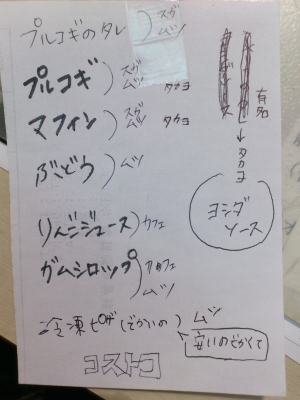 プルコギのタレ)スガ
ムツ
プルコギ)スガ
ムツ タカヨ
マフィン)スガ
ムツ タカヨ
ぶどう)ムツ
りんごジュース)カフェ
ガムシロップ)カフェ
ムツ
冷凍ピザ(でかいの)ムツ
安いのでかくて
コストコ
↓
タカヨ
ヨシダ
ソース